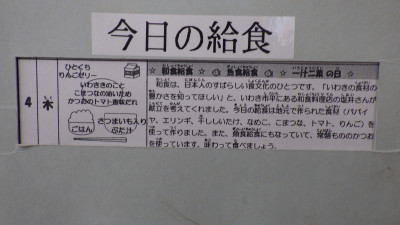 今日の給食
4
木
ひとくち
りんごゼリー
いわききのこと
こまつなの油いため
かつおのトマト香味だれ
ごはん
さつまいも入り
ぶた汁
☆ 和食給食 ☆ 魚食給食 ☆ 一汁二菜の日 ☆
和食は、日本人のすばらしい食文化のひとつです。「いわきの食材の
豊かさを知ってほしい」と、いわき市平にある和食料理店の塩井さんが
献立を考えてくれました。今日の給食は地元で作られた食材（パパイ
ヤ、エリンギ、干ししいたけ、なめこ、こまつな、トマト、りんご）を
使って作りました。また、魚食給食にもなっていて、常磐もののかつお
を使っています。味わって食べましょう。